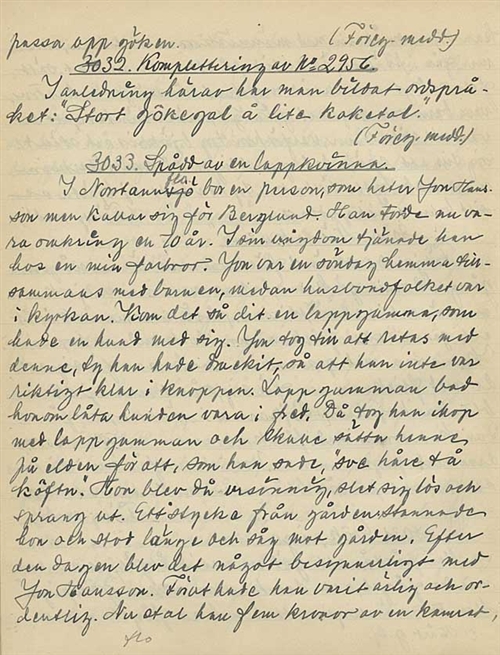 passa upp göken. (Föreg. medd.)
3032. Komplettering av No 2956.
I anledning härav har man bildat ordsprå-
ket: "Stort gökegal å lite koketal."
(Föreg. medd.)
3033. Spådd av en lappkvinna.
I Norrannsjö bor en person, som heter Jon Hans-
son men kallar sig för Berglund. Han torde nu va-
ra omkring en 70 år. I sin ungdom tjänade han
hos en min farbror. Jon var en söndag hemma till-
sammans med barnen, medan husbondfolket var
i kyrkan. Kom det så dit en lappgumma, som
hade en hund med sig. Jon tog till att retas med
denne, ty han hade druckit, så att han inte var
riktigt klar i knoppen. Lappgumman bad
honom låta hunden vara i fred. Då tog han ihop
med lappgumman och skulle sätta henne
på elden för att, som han sade, "sve håre tå
köftn". Hon blev då ursinnig, slet sig lös och
sprang ut. Ett stycke från gården stannade
hon och stod länge och såg mot gården. Efter
den dagen blev det något besynnerligt med
Jon Hansson. Förut hade han varit ärlig och or-
dentlig. Nu stal han fem kronor av en kamrat,